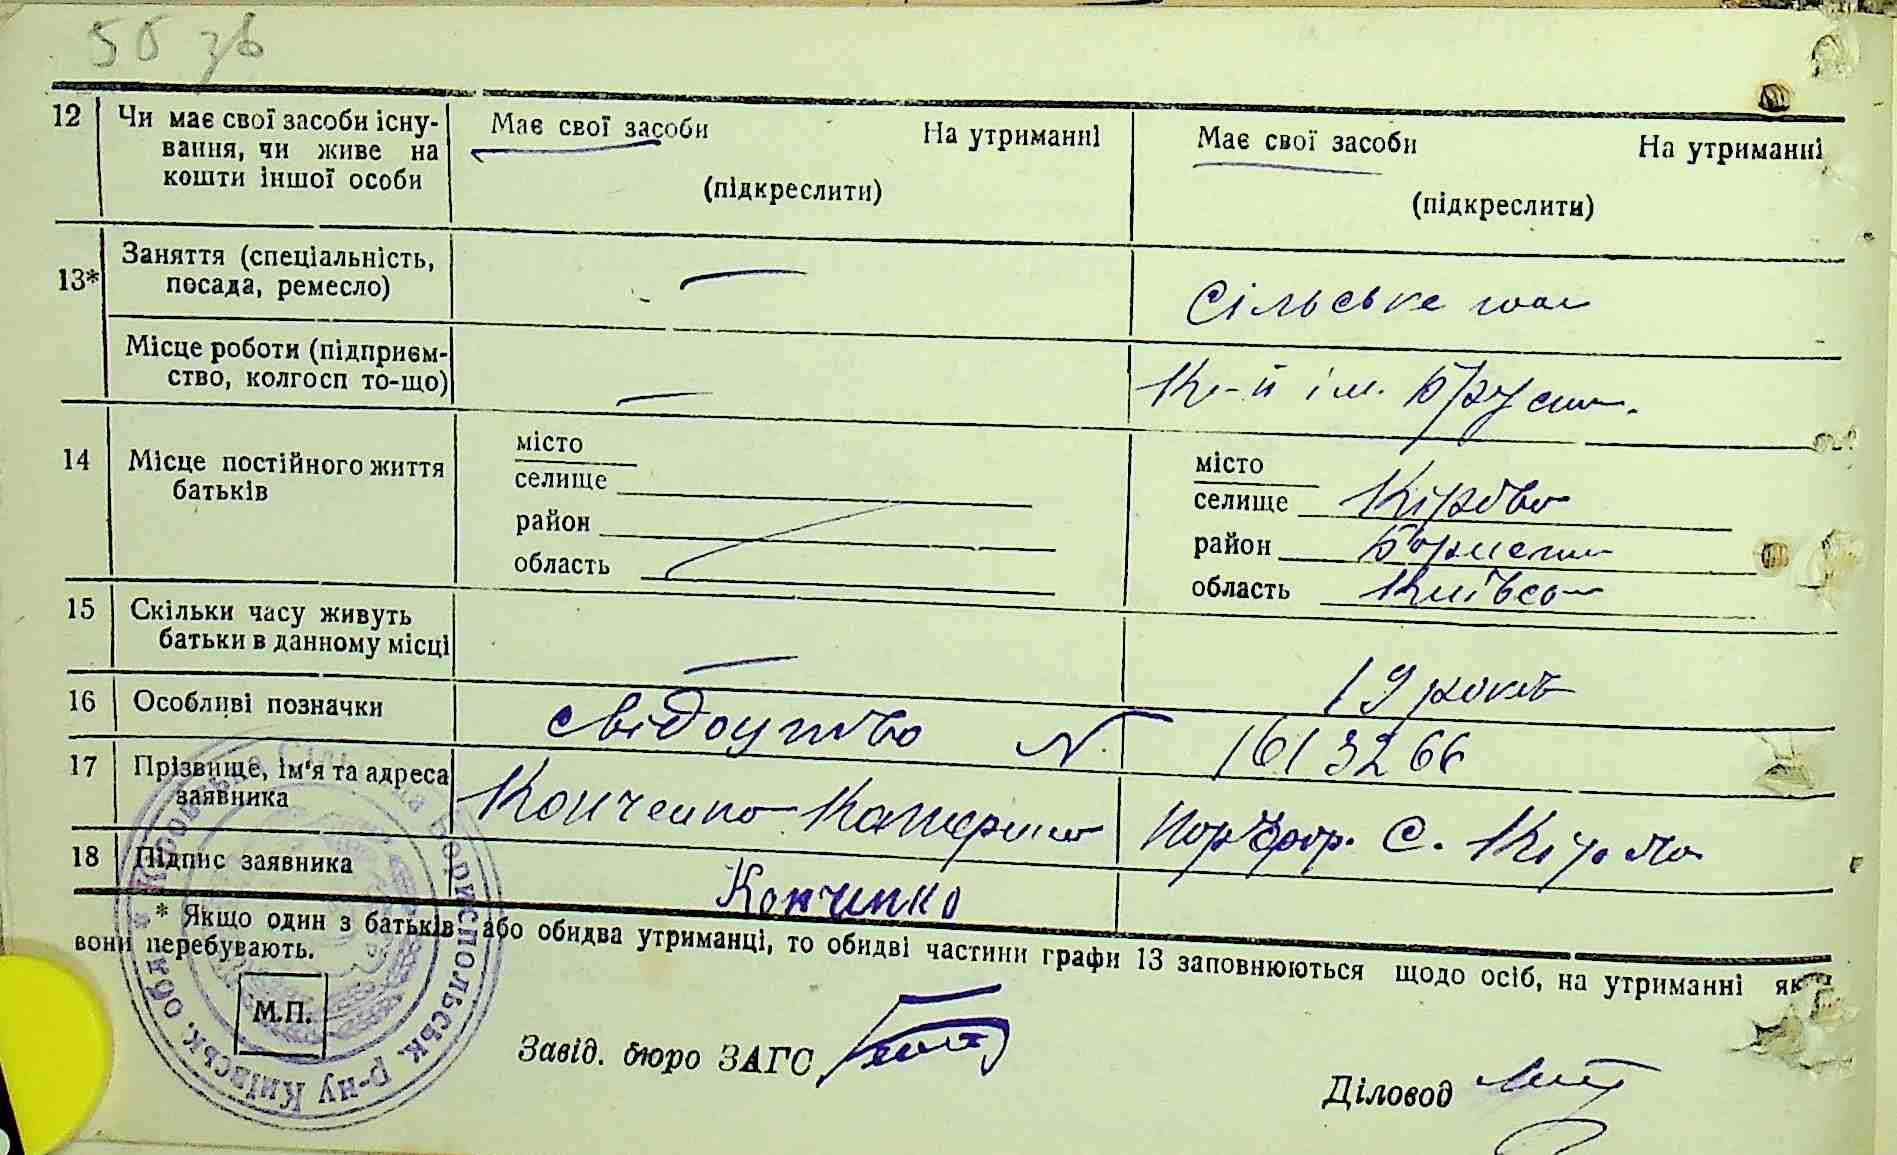 56 зв
12 Чи має свої засоби існу- Має свої засоби На утриманні Має свої засоби На утриманні
вання, чи живе на
кошти іншої особи (підкреслити) (підкреслити)
13* Заняття (спеціальність,
посада, ремесло) Сільське
Місце роботи (підприєм-
ство, колгосп то-що) ім.
14 Місце постійного життя
батьків
місто місто
селище селище Кірово
район район
область область
15 Скільки часу живуть
батьки в данному місці 19 років
16 Особливі позначки свідоцтво N 1613266
17 Прізвище, ім'я та адреса
заявника Конченко с.
18 Підпис заявника Конченко
* Якщо один з батьків або обидва утриманці, то обидві частини графи 13 заповнюються щодо осіб, на утриманні яких
вони перебувають.
М.П.
Завід. бюро ЗАГС
Діловод
Бориспольськ. р-ну Київськ. обл.